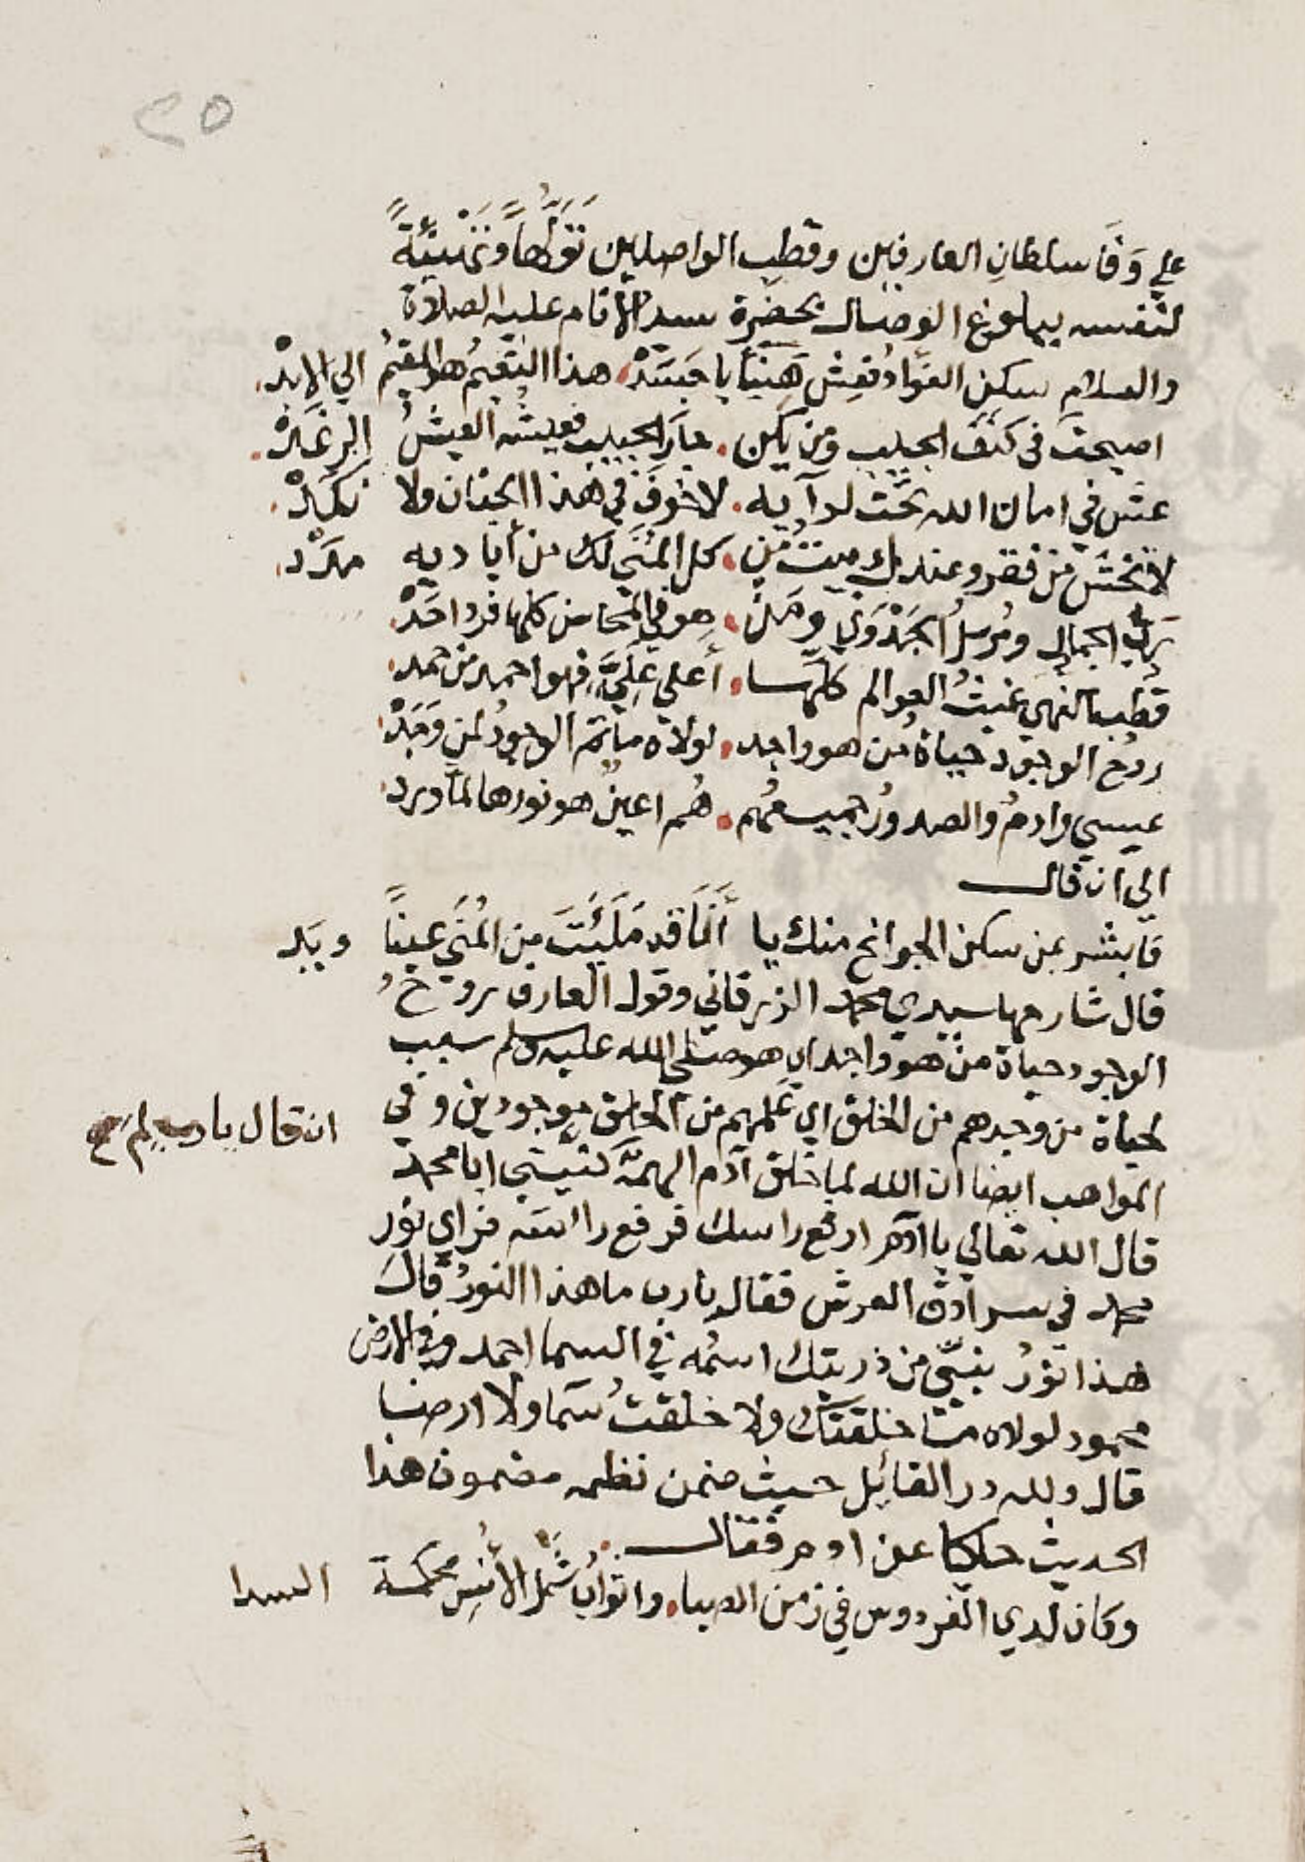 ٢٥
علي وَفَا سلطانِ العارفين وقطبِ الواصلين تَوَلُّهاً وتَهْنِيَةً
لنفسه ببلوغ الوصال بحضرة سيد الأنام عليه الصلاة
والسلام سكن الفؤادُ فعِش هَنيئاً يا جَسَدْ هذا النعيمُ هو المقيمُ الي الابدْ
اصبحتَ في كنَفِ الحبيب ومن يكن جارَ الحبيب فعيشُه العيشُ الرغَدْ
عش في امان الله تحت لوآيه لا خوفَ في هذا الجنان ولا نكَدْ
لا تخش من فقر وعندك بيتُ من كل المُنَي لك من أياديه مدَد
ربُّ الجمال ومُرسِلُ الجَدْوَي ومَن هو في المحاسن كلها فرد احَدْ
قُطبُ النهي غيثُ العوالم كلها أعلي عَلِيٍّ فهو احمد من حمد
روحُ الوجود حياةُ من هو واجد لولاه ما تم الوجودُ لمن وَجَدْ
عيسي وادمُ والصدورُ جميعهُم هُم اعينٌ هو نورها لمّا ورد
الي ان قال
فابشر بمن سكن الجوانح منك يا أنَا قد مَلَيْتَ من المُنَي عيناً ويَد
قال شارحها سيدي محمد الزرقاني وقول العارف روحُ
الوجود حياة من هو واجد اي هو صلى الله عليه وسلم سبب
لحياة من وجدهم من الخلق اي علمهم من الخلق موجودين وفي
المواهب ايضا ان الله لما خلق آدم الهمَهُ ان قال يارب لم كنيتني ابا محمد
قال الله تعالي يا آدم ارفع راسك فرفع راسه فراي نور
محمد في سرادق العرش فقال يارب ما هذا النورُ قال
هذا نورُ نبيّ من ذريتك اسمُه في السما احمد وفي الارض
محمود لولاه ما خلقتك ولا خلقتُ سما ولا ارضا
قال ولله در القائل حيث ضمن نظمه مضمون هذا
الحديث حاكيا عن ادم فقال
وكان لدي الفردوس في زمن الصبا واثوابُ شملِ الأنسِ محكمة السدا